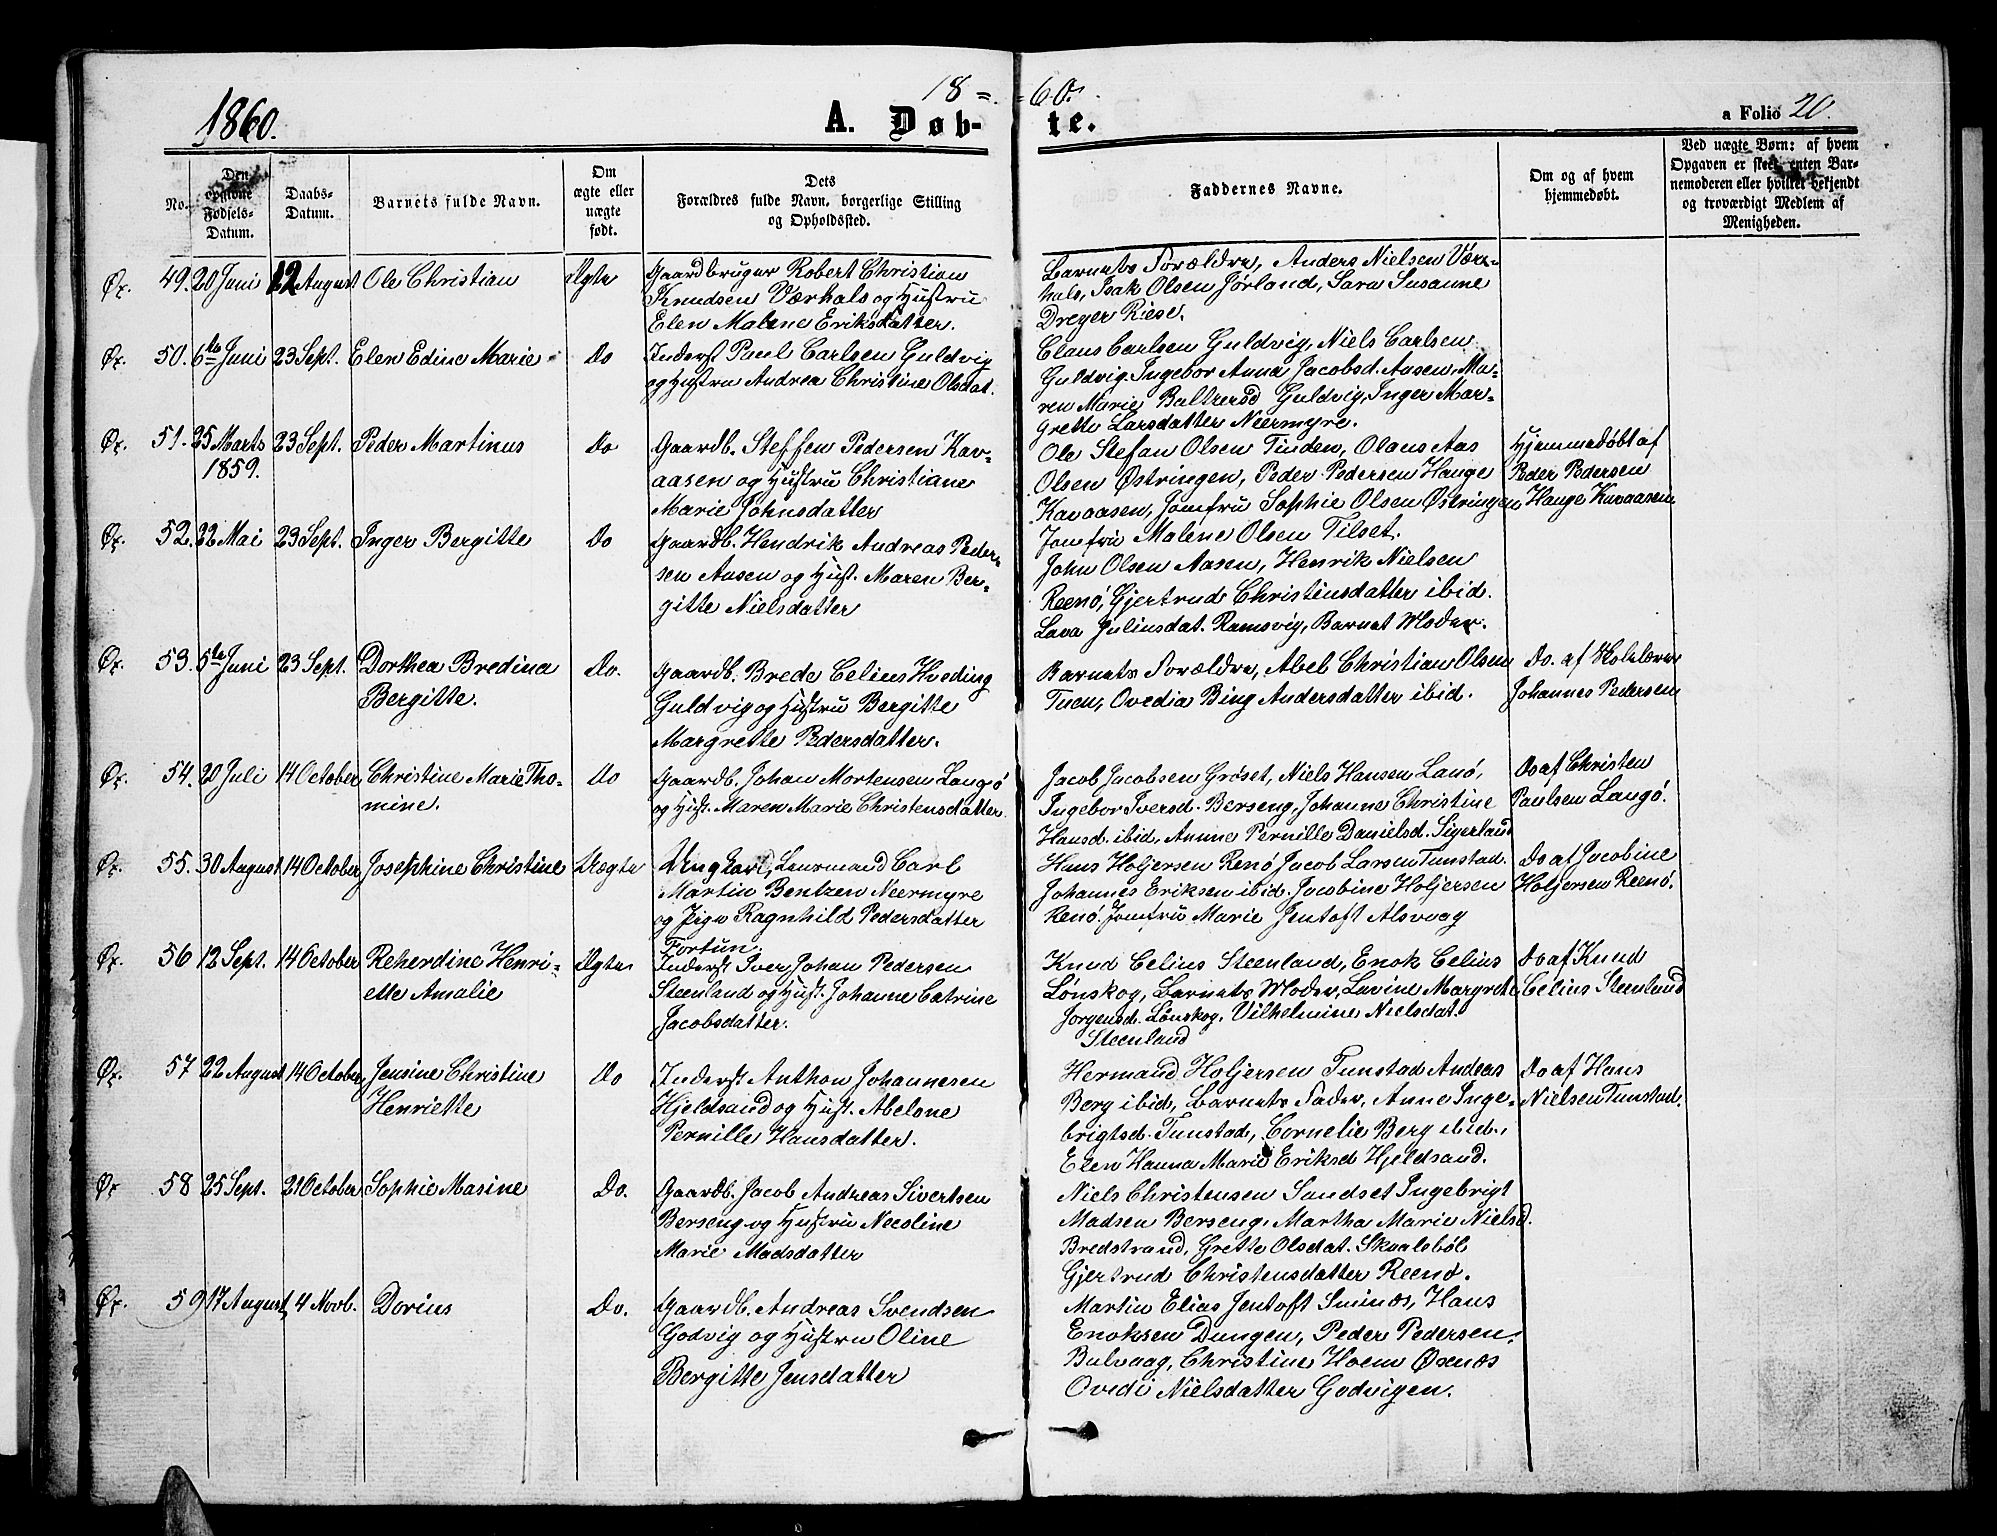 18 = = 60.
1860. A. Døb- te. a Folio 20.
No.
Den opgivne Fødsels-Datum.
Daabs-Datum.
Barnets fulde Navn.
Om ægte eller uægte født.
Dets Forældres fulde Navn, borgerlige Stilling og Opholdssted.
Faddernes Navne.
Om og af hvem hjemmedøbt.
Ved uægte Børn: af hvem Opgaven er skeet, enten Barnemoderen eller hvilket bekjendt og troværdigt Medlem af Menigheden.
Øx. 49. 20 Juni 12 August Ole Christian Ægte
Gaardbruger Robert Christian
Knudsen Værhals og Hustru
Elen Malene Eriksdatter.
Barnets Forældre, Anders Nielsen Vær-
hals, Isak Olsen Jørland, Sara Susanne
Dreyer Riese.
Øx. 50. 6te Juni 23 Sept. Elen Edine Marie Do
Inderst Paul Carlsen Guldvig
og Hustru Andrea Christine Olsdat.
Claus Carlsen Guldvig, Niels Carlsen
Guldvig. Ingebor Anna Jacobsd. Aasen, Ma-
ren Marie Baltzersd Guldvig, Inger Mar-
grethe Larsdatter Neermyre.
Øx. 51. 25 Marts 1859. 23 Sept. Peder Martinus Do
Gaardb. Steffen Pedersen Kav-
aasen og Hustru Christiane
Marie Johnsdatter
Ole Stefan Olsen Tinden, Olaus Aas
Olsen Østringen, Peder Pedersen Hauge
Kavaasen, Jomfru Sophie Olsen Østringen
Jomfru Malene Olsen Tilset.
Hjemmedøbt af
Peder Pedersen
Hauge Kavaasen
Øx. 52. 22 Mai 23 Sept. Inger Bergitte Do
Gaardb. Hendrik Andreas Peder-
sen Aasen og Hust. Maren Ber-
gitte Nielsdatter
John Olsen Aasen, Henrik Nielsen
Reenø, Gjertrud Christensdatter ibid.
Lava Juliusdat. Ramsvig, Barnet Moder.
Øx. 53. 5te Juni 23 Sept. Dorthea Bredina
Bergitte. Do.
Gaardb. Brede Celius Hveding
Guldvig og Hustru Bergitte
Margrethe Pedersdatter.
Barnets Forældre, Abel Christian Olsen
Tuen, Ovedia Bing Andersdatter ibid.
Do. af Skolelærer
Johannes Pedersen
Øx. 54. 20 Juli 14 October Christine Marie Tho-
mine. Do
Gaardb. Johan Mortensen Langø
og Hust. Maren Marie Christensdatter.
Jacob Jacobsen Grøset, Niels Hansen Lanø,
Ingebor Iversd. Berseng, Johanne Christine
Hansd. ibid, Anne Pernille Danielsd. Sigerland
Do af Christen
Paulsen Langø.
Øx. 55. 30 August 14 October Josephine Christine Uægte
Ungkarl, Lensmand Carl
Martin Bentzen Neermyre
og Pige Ragnhild Pedersdatter
Fortun.
Hans Holjersen Renø Jacob Larsen Tunstad.
Johannes Eriksen ibid. Jacobine Holjersen
Renø. Jomfru Marie Jentoft Alsvaag
Do af Jacobine
Holjersen Reenø.
Øx. 56 12 Sept. 14 October Reherdine Henri-
ette Amalie Ægte
Inderst Iver Johan Pedersen
Steenland og Hust. Johanne Catrine
Jacobsdatter.
Knud Celius Steenland, Enok Celius
Lønskog, Barnets Moder, Lavine Margrete
Jørgensd. Lønskog, Vilhelmine Nielsdat.
Steenland
Do af Knud
Celius Steenland
Øx. 57 22 August 14 October Jensine Christine
Henriette Do
Inderst Anthon Johannesen
Hjeldsand og Hust. Abelone
Pernille Hansdatter.
Hermand Holjersen Tunstad Andreas
Berg ibid, Barnets Fader, Anne Inge-
brigtsd. Tunstad, Cornelie Berg ibid.,
Elen Hanna Marie Eriksd Hjeldsand.
Do af Hans
Nielsen Tunstad.
Øx 58 25 Sept. 21 October Sophie Masine Do.
Gaardb. Jacob Andreas Sivertsen
Berseng og Hustru Necoline
Marie Madsdatter
Niels Christensen Sandset Ingebrigt
Madsen Berseng, Martha Marie Nielsd.
Bredstrand, Grethe Olsdat. Skvalsböl
Gjertrud Christensdatter Reenø.
Øx. 59 17 August 4 Novb. Dorius Do.
Gaardb. Andreas Svendsen
Godvig og Hustru Oline
Bergitte Jensdatter
Martin Elias Jentoft Sminæs, Hans
Enoksen Dungen, Peder Pedersen
Bulvaag, Christine Hoem Øxnæs
Ovedi Nielsdatter Godvigen.